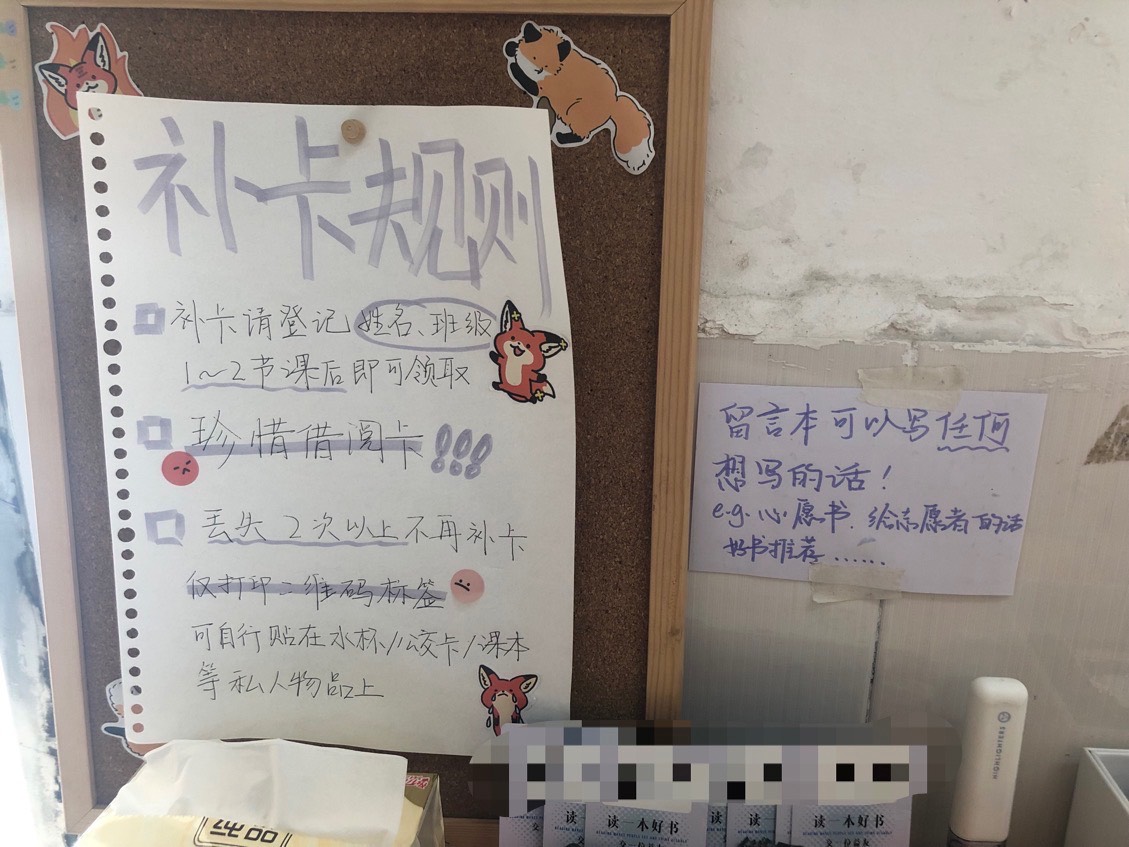 补卡规则
补卡请登记 姓名、班级
1~2节课后即可领取
珍惜借阅卡!!!
丢失2次以上不再补卡
仅打印二维码标签
可自行贴在水杯/校卡/课本
等私人物品上
留言本可以写任何
想写的话!
e.g.心愿书、给志愿者的话
好书推荐......
读一本好书
读
读
读一本好书
交一位益友
交一位益友